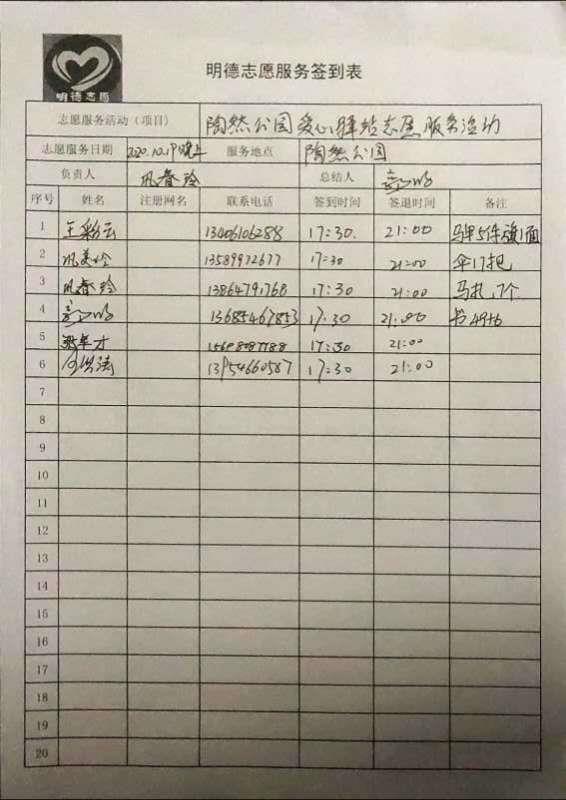 明德志愿
明德志愿服务签到表
志愿服务活动（项目） 陶然公园爱心驿站志愿服务活动
志愿服务日期 2020.10.19晚上 服务地点 陶然公园
负责人 巩春玲 总结人
序号 姓名 注册网名 联系电话 签到时间 签退时间 备注
1 王彩云 13406106288 17:30. 21:00 马甲5件 旗1面
2 巩美玲 13589972677 17:30 21:00 伞17把
3 巩春玲 13864791768 17:30 21:00 马扎,7个
4 13685467853 17.30 21:00 书49本
5 17:30 21:00
6 13954660587 17:30 21:00
7
8
9
10
11
12
13
14
15
16
17
18
19
20